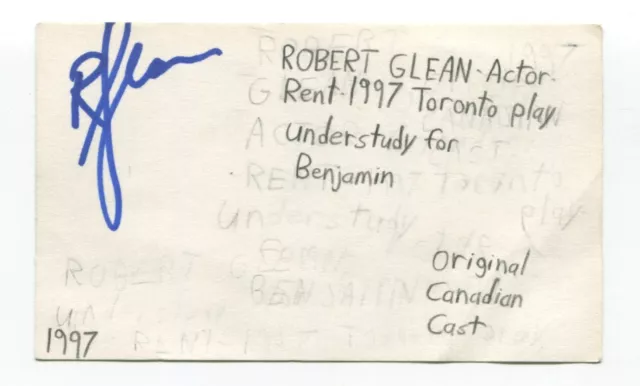 RGlean
ROBERT GLEAN-Actor-
Rent-1997 Toronto play
understudy for
Benjamin
Original
Canadian
Cast
1997